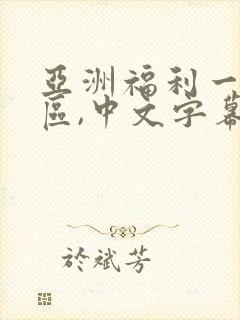 亞洲福利一
區,中文字幕
於斌芳